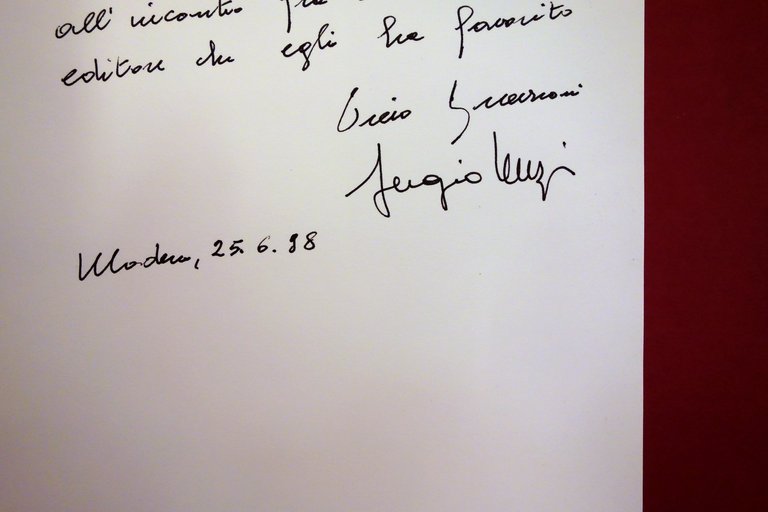 all'incontro fra
editore che egli ha favorito
Licio
Sergio
Modena, 25.6.98